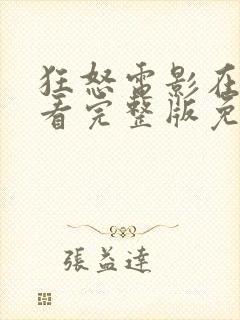 狂怒雷影在
看完整版免
張益達